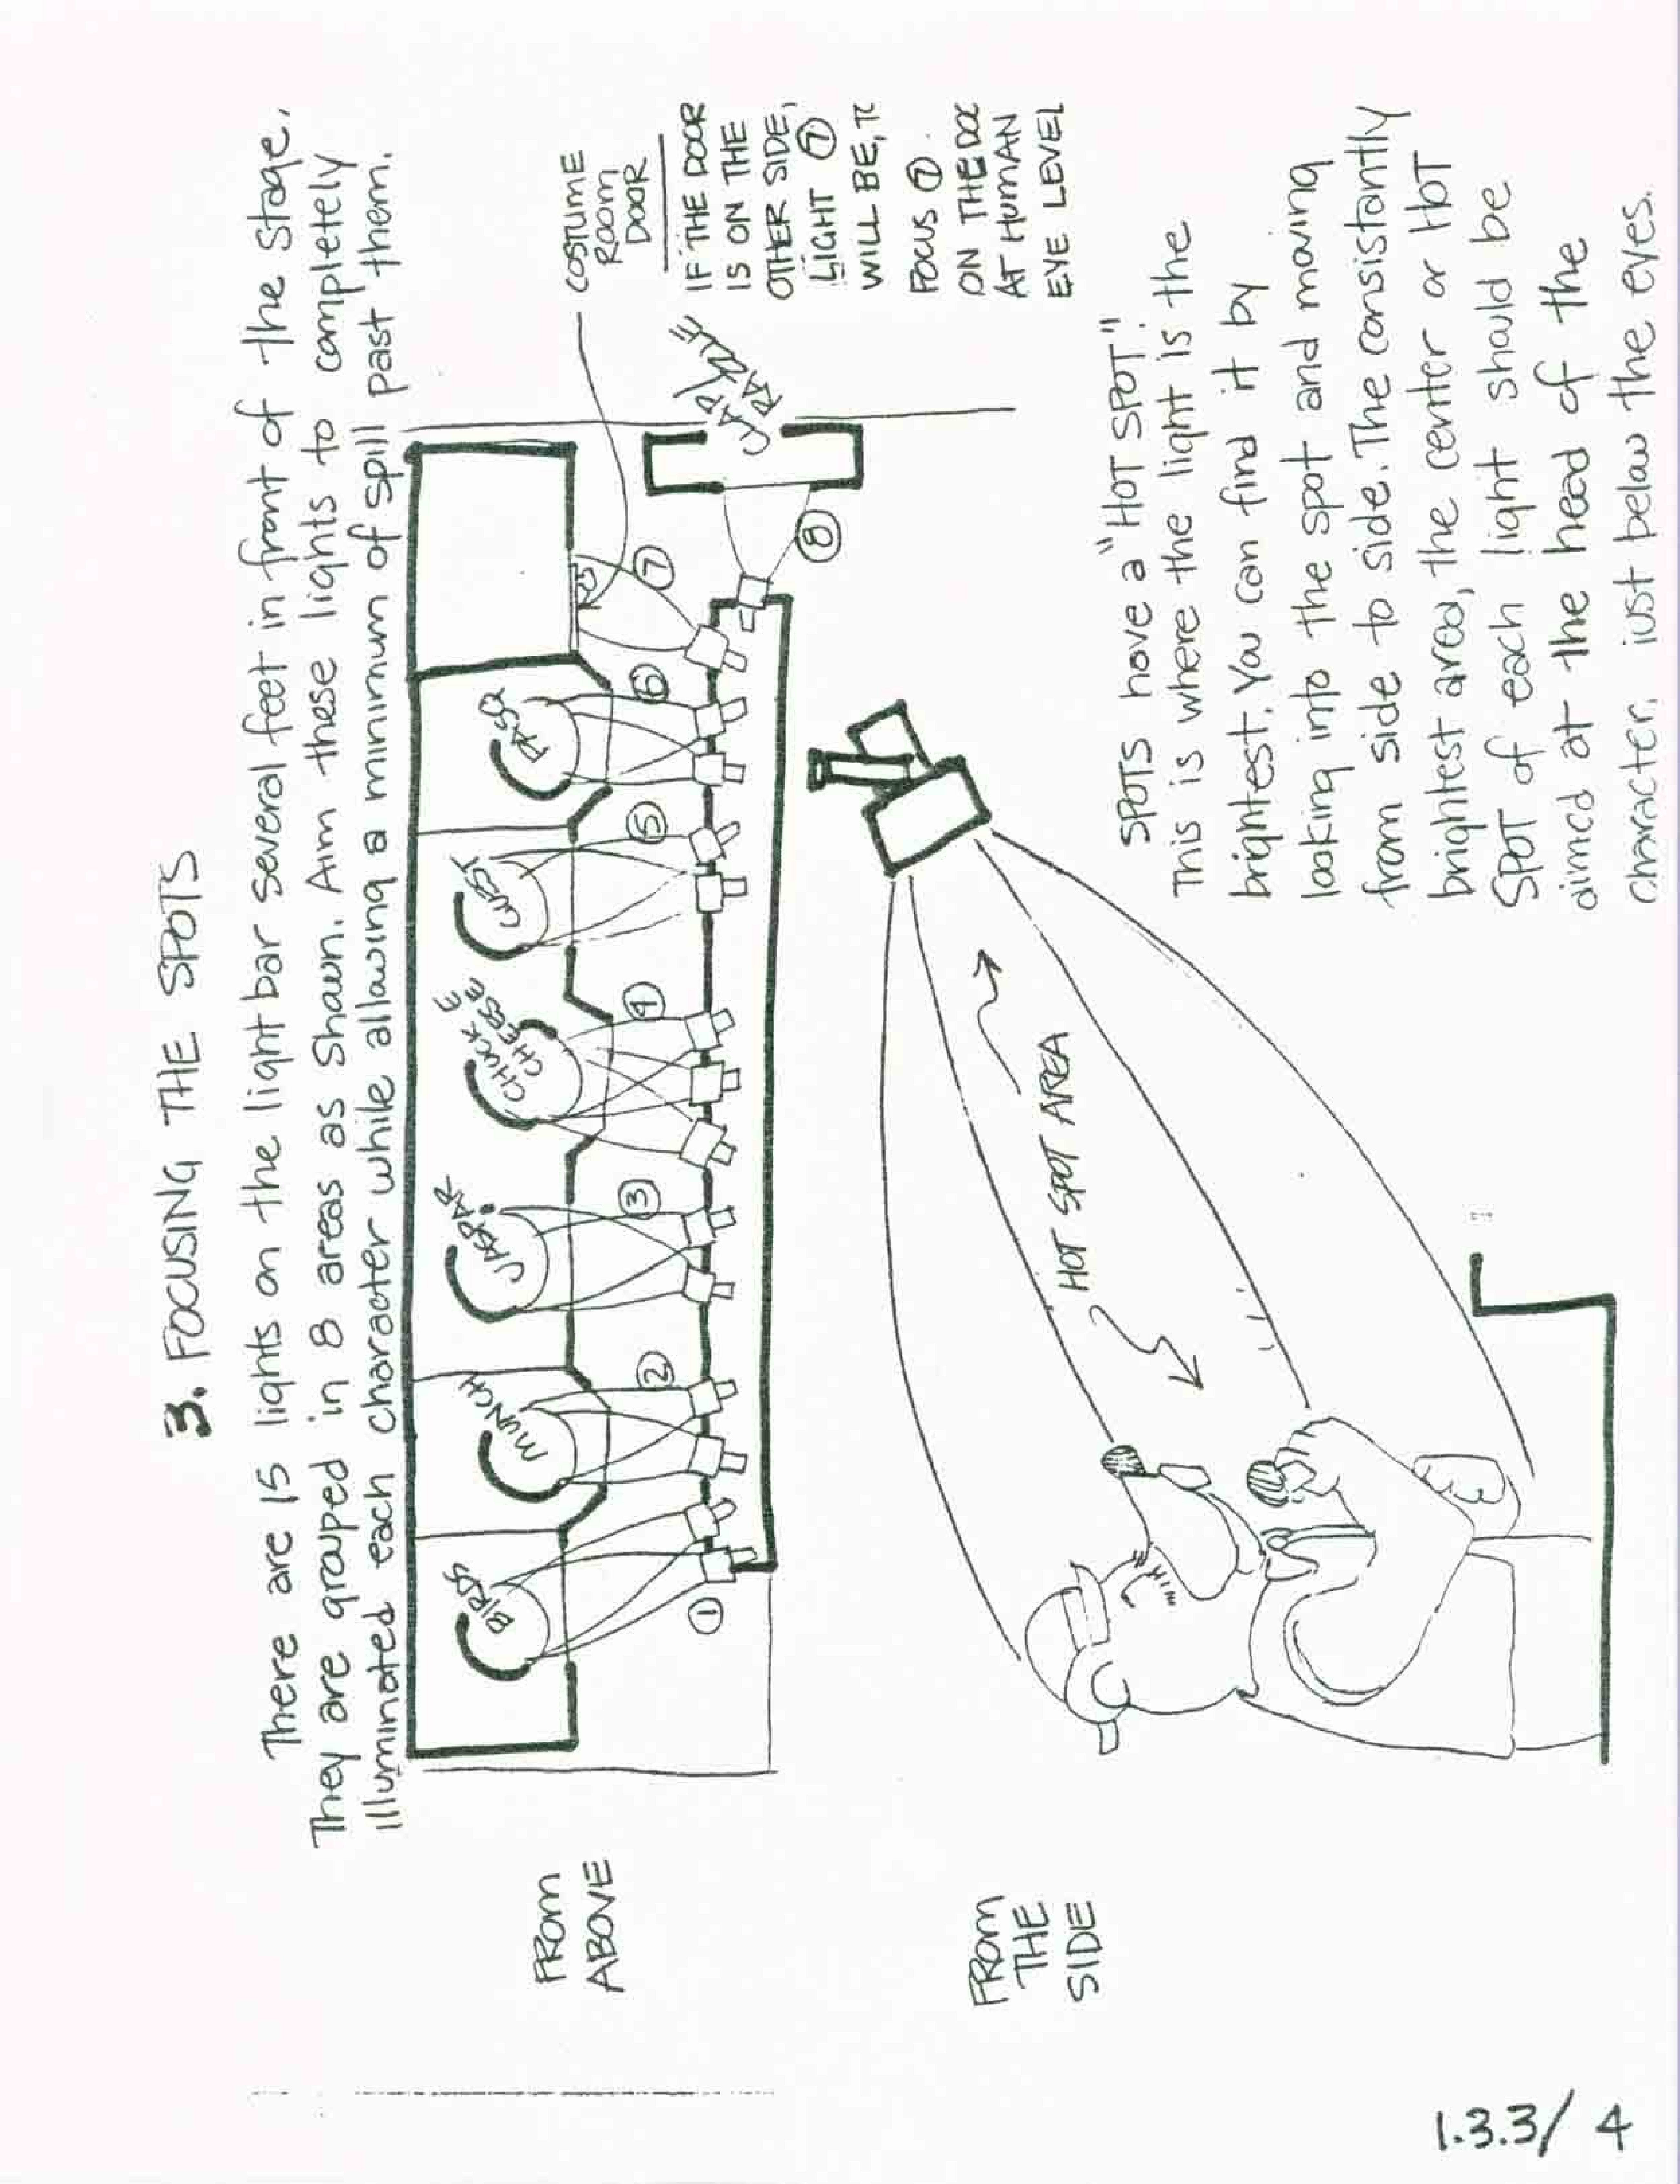 3. FOCUSING THE SPOTS
There are 15 lights on the light bar several feet in front of the stage.
They are grouped in 8 areas as shown. Aim these lights to completely
illuminated each character while allowing a minimum of spill past them.
FROM
ABOVE
BIRD
MUNCH
JASPAR
CHUCK E
CHEESE
GUEST
PASQ
1
2
3
4
5
6
7
8
COSTUME
ROOM
DOOR
IF THE DOOR
IS ON THE
OTHER SIDE,
LIGHT 7
WILL BE, TO
FOCUS 7
ON THE DOO
AT HUMAN
EYE LEVEL
FROM
THE
SIDE
HOT SPOT AREA
SPOTS have a "HOT SPOT".
This is where the light is the
brightest. You can find it by
looking into the spot and moving
from side to side. The consistantly
brightest area, the center or HOT
SPOT of each light should be
aimed at the head of the
character, just below the eyes.
1.3.3/ 4